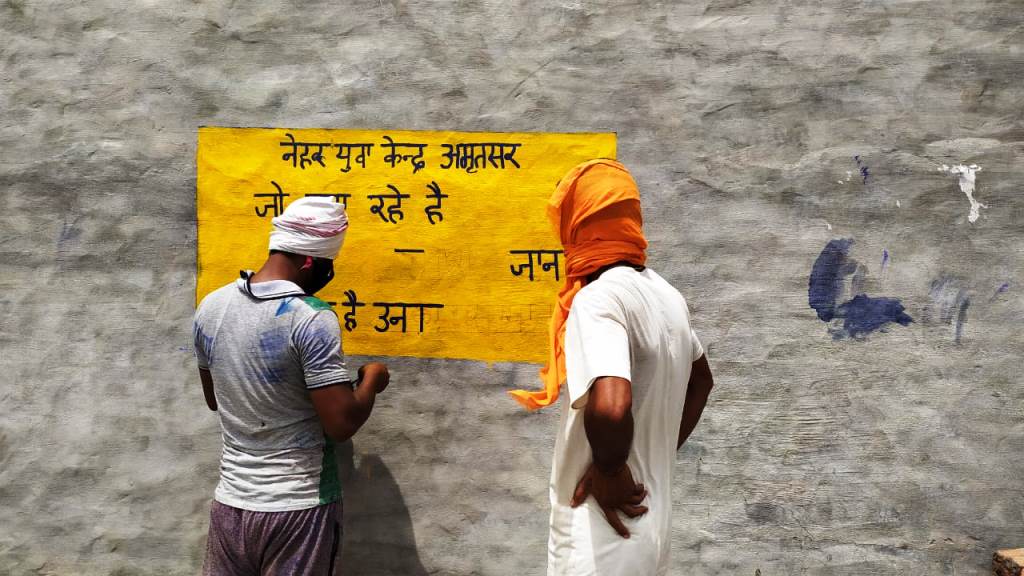 नेहरू युवा केन्द्र अमृतसर
जो रहे है
जान
है उना